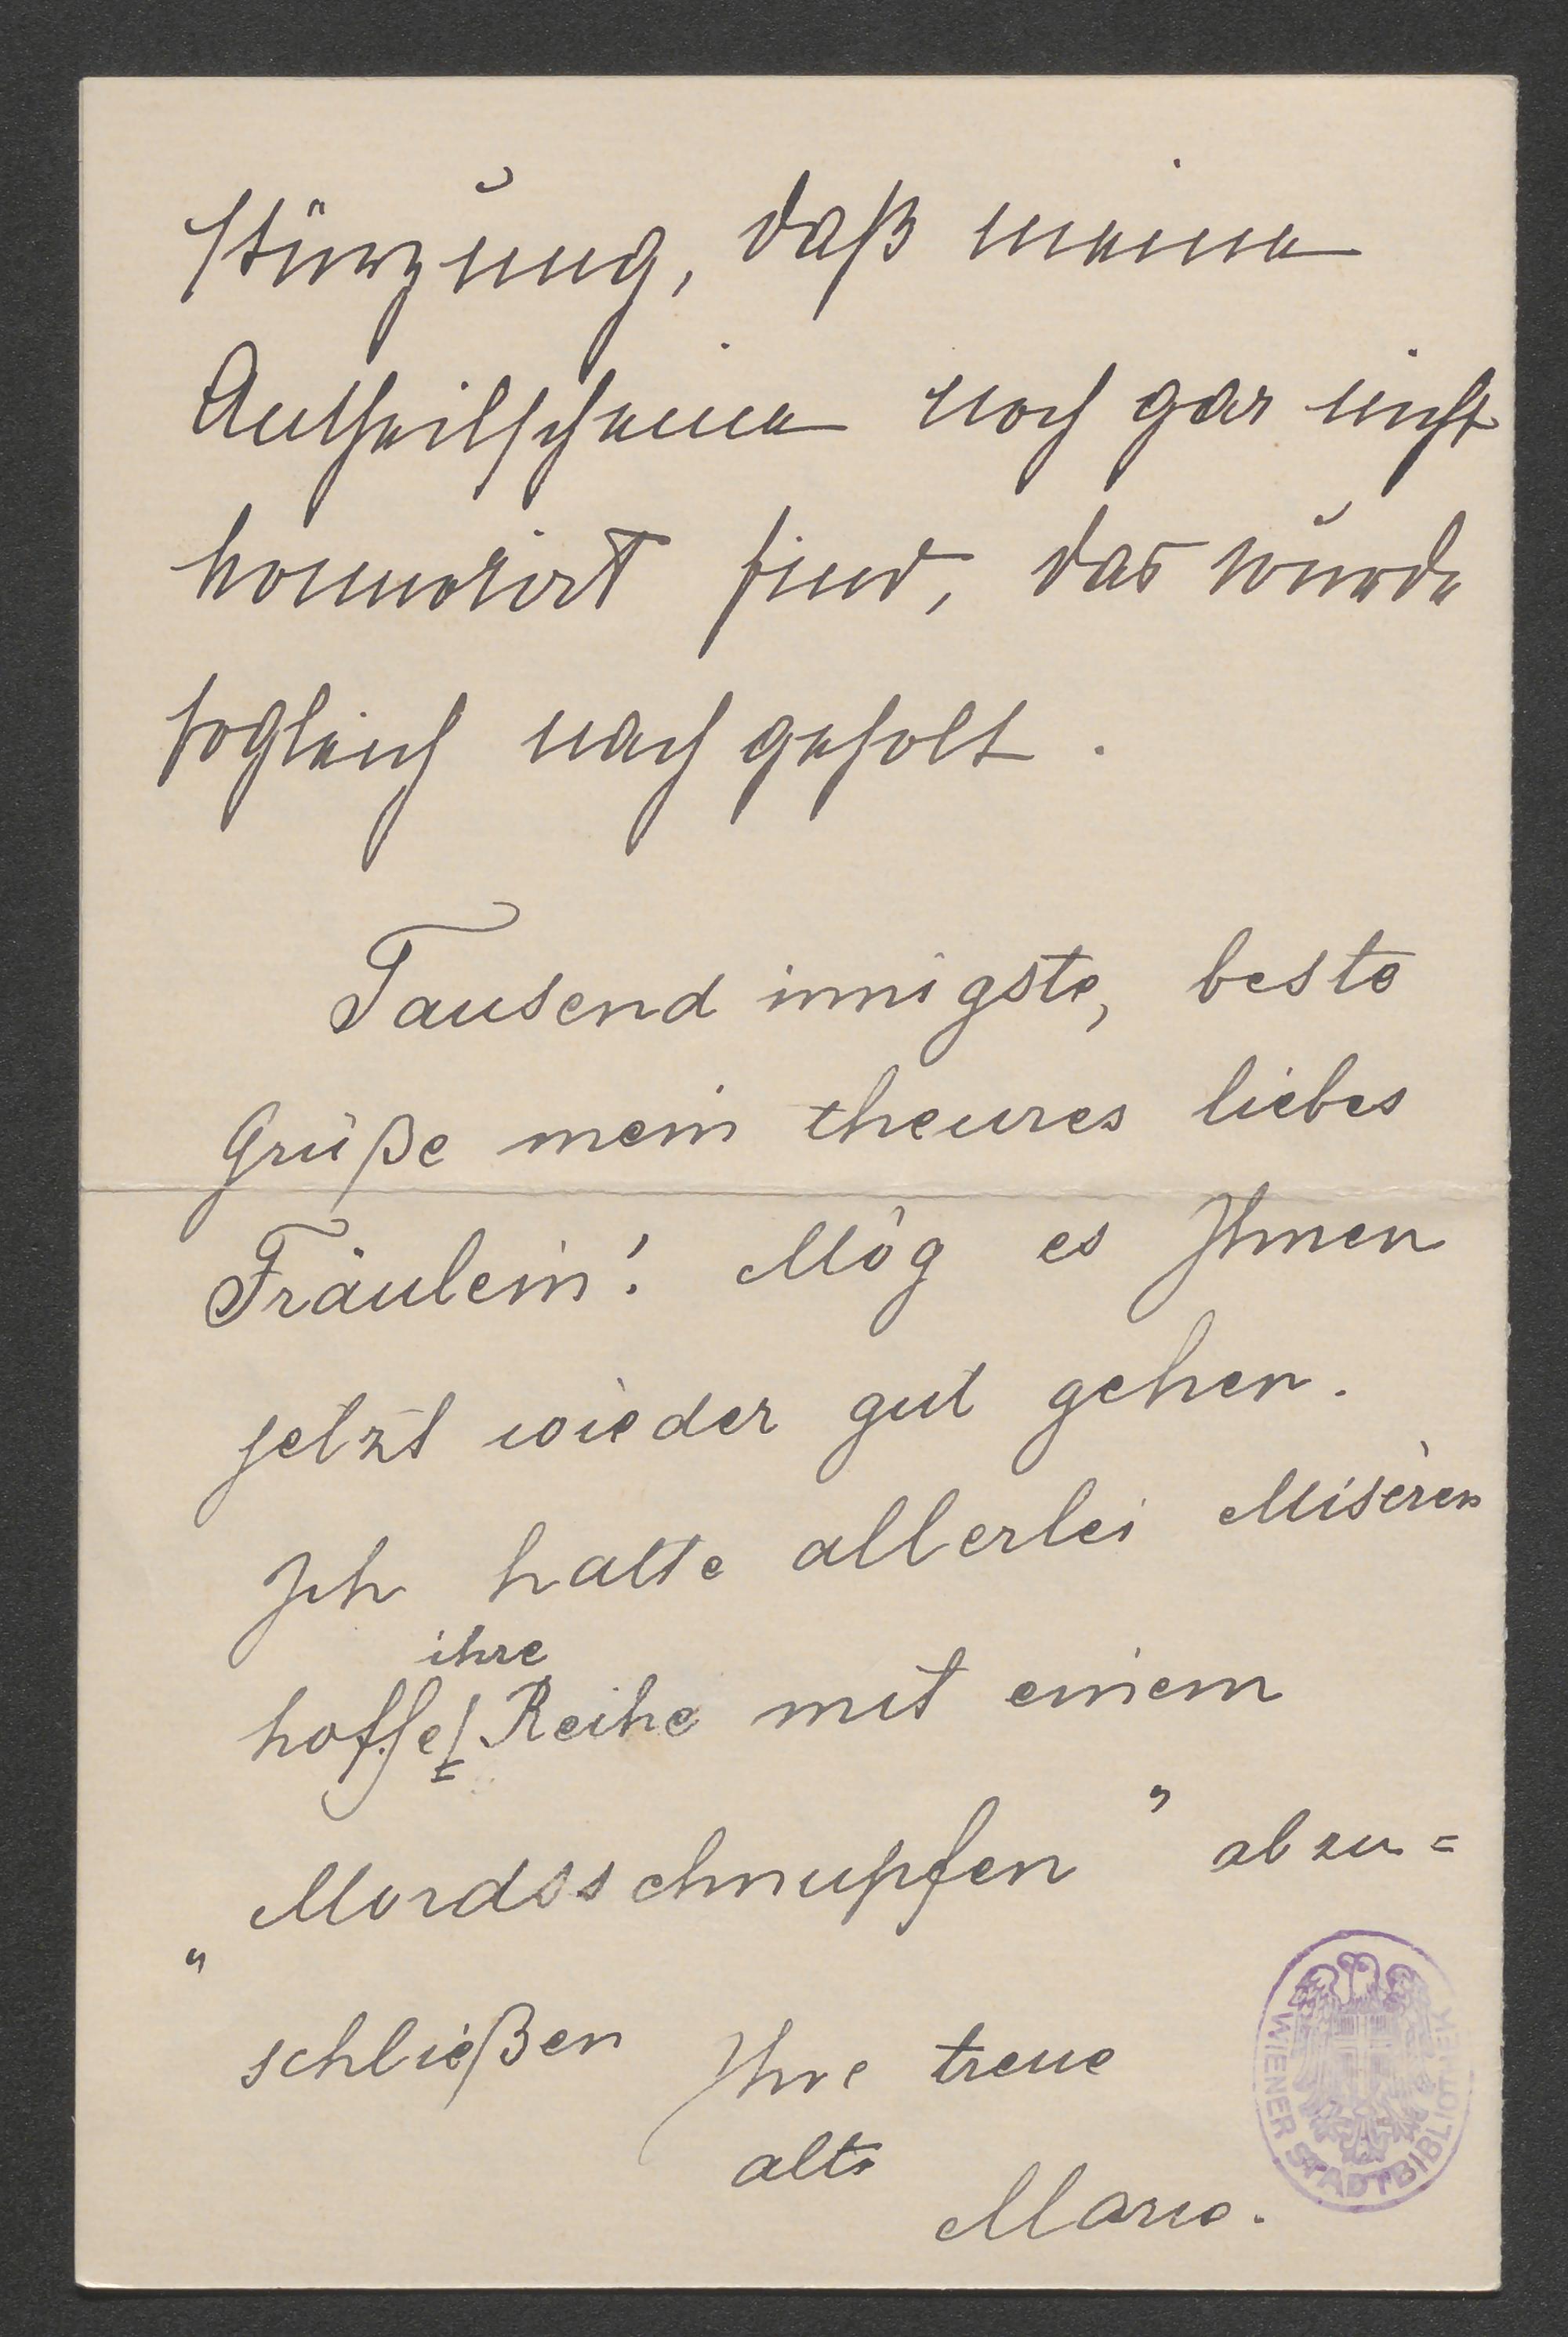 stürzung, daß meine
Antheilscheine noch gar nicht
honnorirt sind, das wurde
sogleich nach geholt.
Tausend innigste, beste
Grüße mein theures liebes
Fräulein! Mög es Ihnen
jetzt wieder gut gehen.
Ich hatte allerlei Misèren
ihre
hoffe! Reihe mit einem
„Mordsschnupfen" abzu=
schließen Ihre treue
alte
Marie.
WIENER STADTBIBLIOTHEK